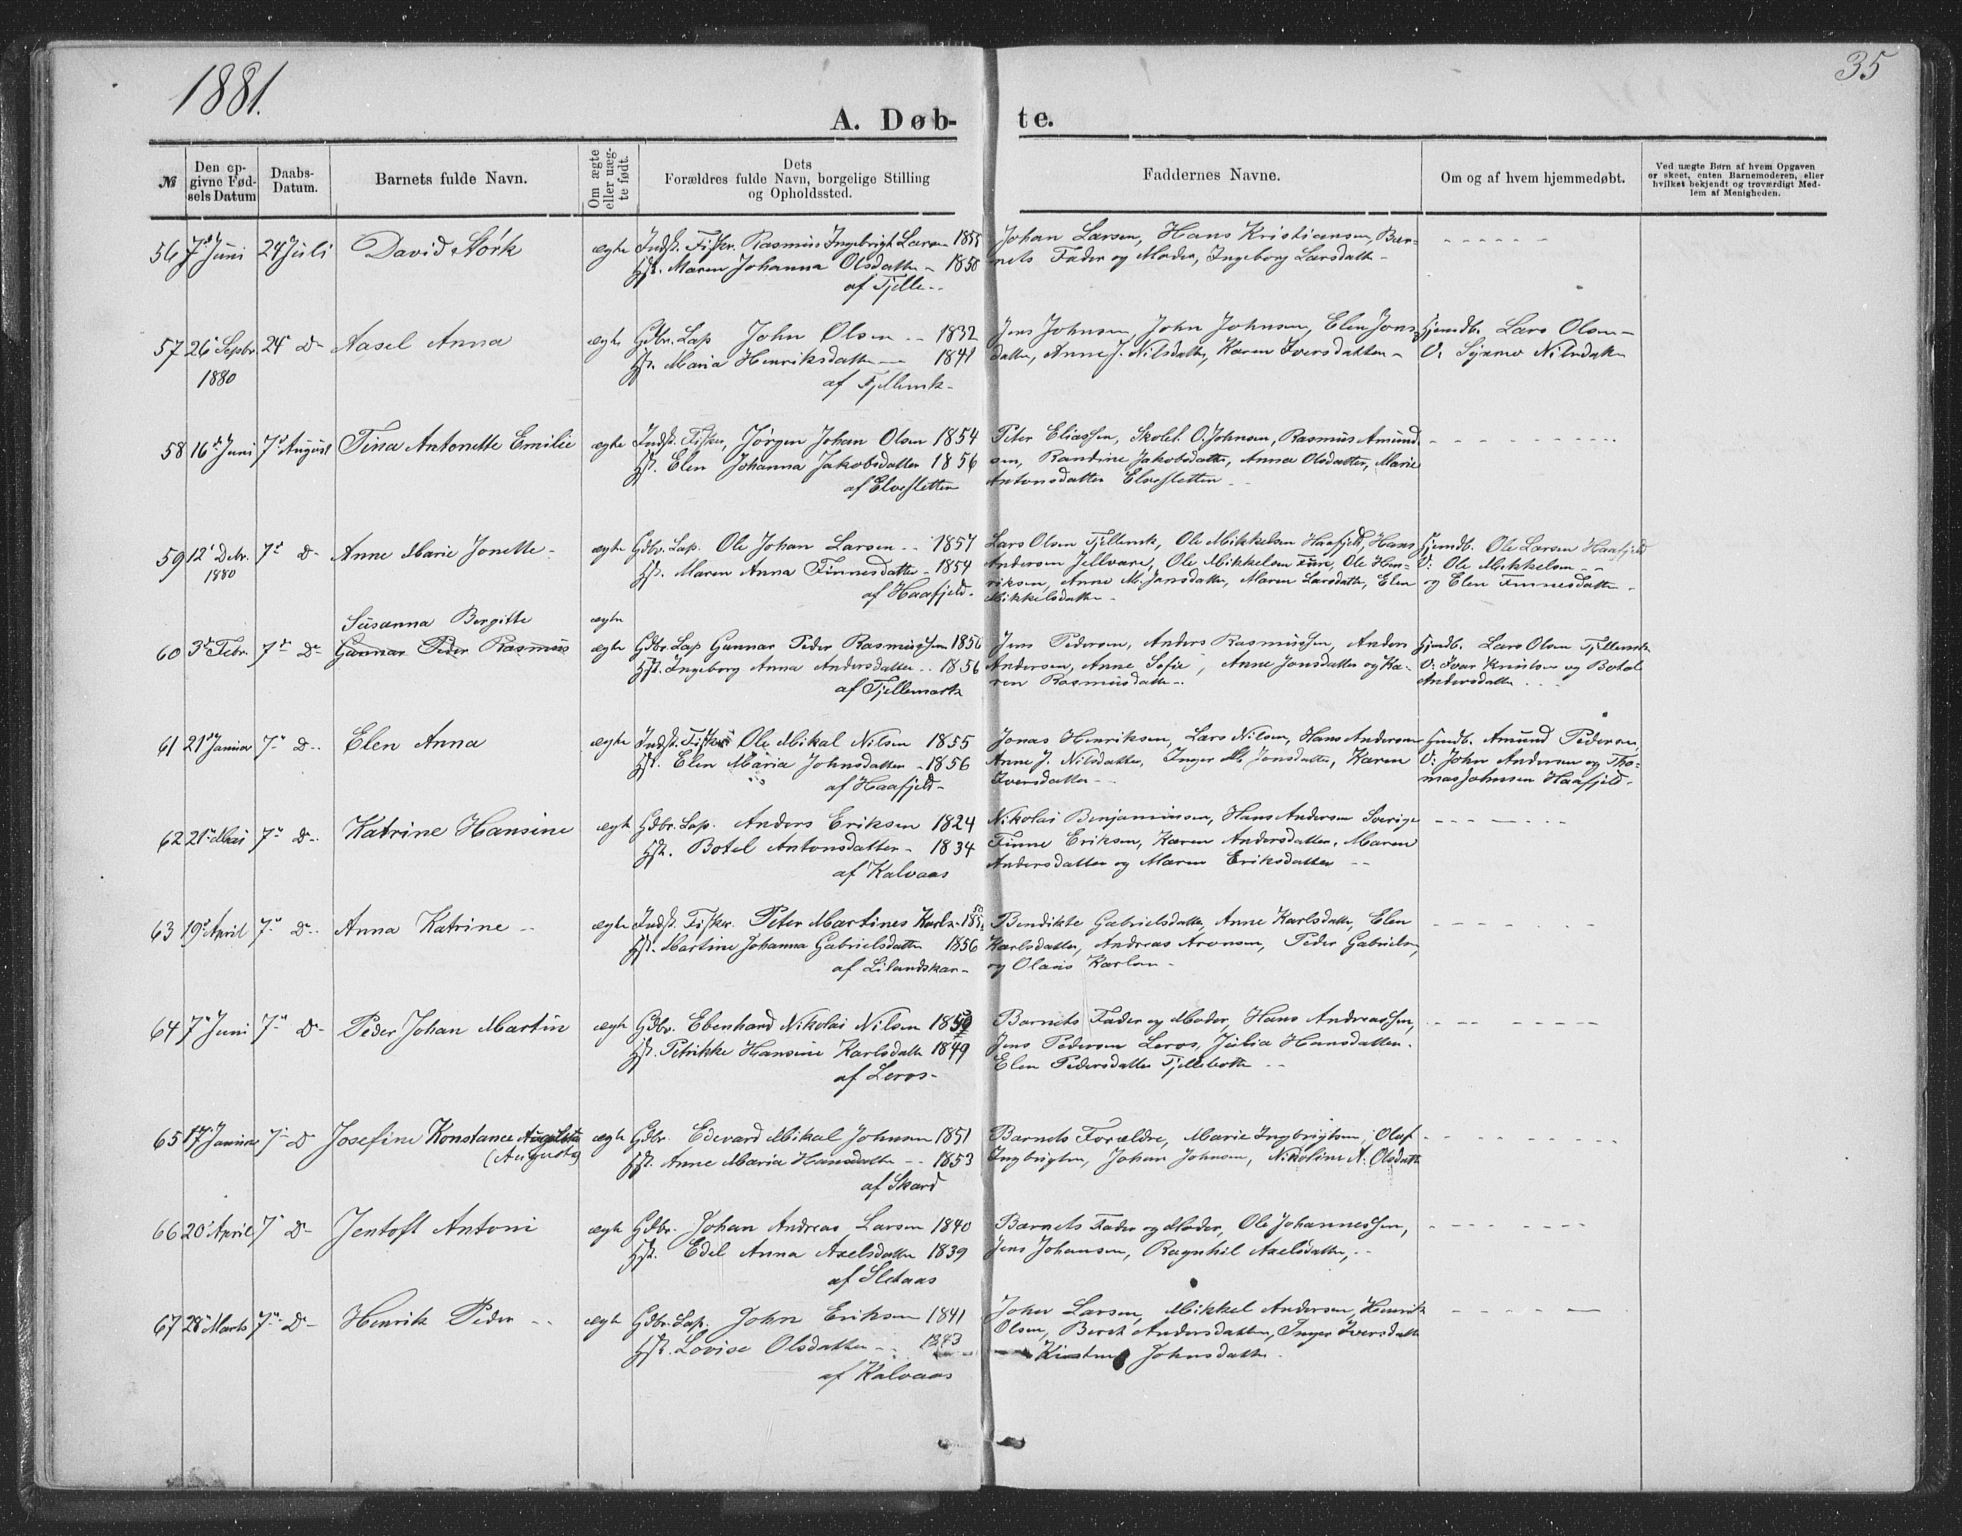 1881.
35
A. Døb-
te.
№
Den op-
givne Fød-
sels Datum
Daabs-
Datum.
Barnets fulde Navn.
Om ægte
eller uæg-
te født.
Dets
Forældres fulde Navn, borgelige Stilling
og Opholdssted.
Faddernes Navne.
Om og af hvem hjemmedøbt.
Ved uægte Børn af hvem Opgaven
er skeet, enten Barnemoderen, eller
hvilket bekjendt og troværdigt Med-
lem af Menigheden.
56 7 Juni 24 Juli David Stork ægte Indst. Fisker. Rasmus Ingebrigt Larsen 1855
Johan Larsen, Hans Kristiansen, Bar-
Hst. Maren Johanna Olsdatter - 1858
nets Fader og Moder, Ingeborg Larsdatter -
af Fjelle
57 26 Septbr. 24 D Aasel Anna ægte Gdbr. Lap John Olsen - 1832
1880
Jens Johnsen, John Johnsen, Elen Jons-
Hjemdb. Lars Olsen
Hst. Maria Henriksdatter - 1841
datter, Anne J. Nilsdatter, Karen Iversdatter -
V: Synnøv Nilsdatter
af Fjellmark
58 16 Juni 7 August Tina Antonette Emilie ægte Indst. Fisker, Jørgen Johan Olsen 1854
Peter Eliassen, Skolel. O. Johnsen, Rasmus Amund-
Hst. Elen Johanna Jakobsdatter 1856
sen, Randine Jakobsdatter, Anna Olsdatter, Marie
af Elvesletten
Antonsdatter Elvesletten
59 12 Debr. 7 D Anne Marie Jonette ægte Gdbr. Lap. Ole Johan Larsen 1857
1880
Lars Olsen Fjellmark, Ole Mikkelsen Haafjeld, Hans
Hjemdb. Ole Larsen Haafjeld
Hst. Maren Anna Finnesdatter - 1854
Andersen Jellvare, Ole Mikkelsen, Ole Hen-
V: Ole Mikkelsen
af Haafjeld.
riksen, Anne M. Jansdatter, Maren Larsdatter, Elen
og Elen Finnesdatter
Mikkelsdatter
Susanna Bergitte ægte
60 3 Febr. 7 D Gunnar Peder Rasmus ægte Gdbr. Lap Gunnar Peder Rasmussen 1856
Jens Pedersen, Anders Rasmussen, Anders
Hjemdb. Lars Olsen Fjellmark
Hst. Ingeborg Anna Andersdatter 1856
Andersen, Anne Sofie, Anne Jonsdatter og Ka-
V: Ivar Knutsen og Botel
af Fjellemark
ren Rasmusdatter
Andersdatter
61 21 Januar 7 D Elen Anna ægte Indst. Fisker Ole Mikal Nilsen 1855
Jonas Henriksen, Lars Nilsen, Hans Andersen
Hjemdb. Amund Pedersen,
Hst. Elen Maria Johnsdatter - 1856
Anne J. Nilsdatter, Inger M. Jonsdatter, Karen
V: John Andersen og Tho-
af Haafjeld
Iversdatter
mas Johnsen Haafjeld.
62 21 Mai 7 D Katrine Hansine ægte Gdbr. Lap. Anders Eriksen 1824
Nikolai Benjaminsen, Hans Andersen Sverige
Hst. Botel Antonsdatter - 1834
Finne Eriksen, Karen Andersdatter, Maren
af Kalvaas
Andersdatter og Maren Eriksdatter
63 19 April 7 D Anna Katrine ægte Indst. Fisker. Peter Martines Karls.
Bendikte Gabrielsdatter, Anne Karlsdatter, Elen
Hst. Martine Johanna Gabrielsdatter 1856
Karlsdatter, Andreas Aronsen, Peder Gabrielsen,
af Lilandskar
og Olaus Karlsen
64 7 Juni 7 D Peder Johan Martin ægte Gdbr. Ebenhard Nikolai Nilsen
Barnets Fader og Moder, Hans Andreassen,
Hst. Petrikke Hansine Karlsdatter 1849
Jens Pedersen Leros, Julia Hansdatter.
af Leros
Elen Pedersdatter Fjellbotn
65 17 Januar 7 D Josefine Konstance Augusta ægte Gdbr. Edevard Mikal Johnsen 1851
(Augusta)
Barnets Forældre, Marie Ingbrigtsen, Olaf
Hst. Anne Maria Hansdatter - 1853
Ingbrigtsen, Johan Johnsen, Nikoline A. Olsdatter
af Skard
66 20 April 7 D Jentoft Antoni ægte Gdbr. Johan Andreas Larsen 1840
Barnets Fader og Moder, Ole Johannessen,
Hst. Edel Anna Axelsdatter 1839
Jens Johansen, Ragnhil Axelsdatter,
af Sletaas
67 28 Marts 7 D Henrik Peder ægte Gdbr. Lap. John Eriksen 1841
John Larsen, Mikkel Andersen, Henrik
Hst. Lovise Olsdatter 1843
Olsen, Beret Andersdatter, Inger Iversdatter
af Kalvaas
Johnsdatter